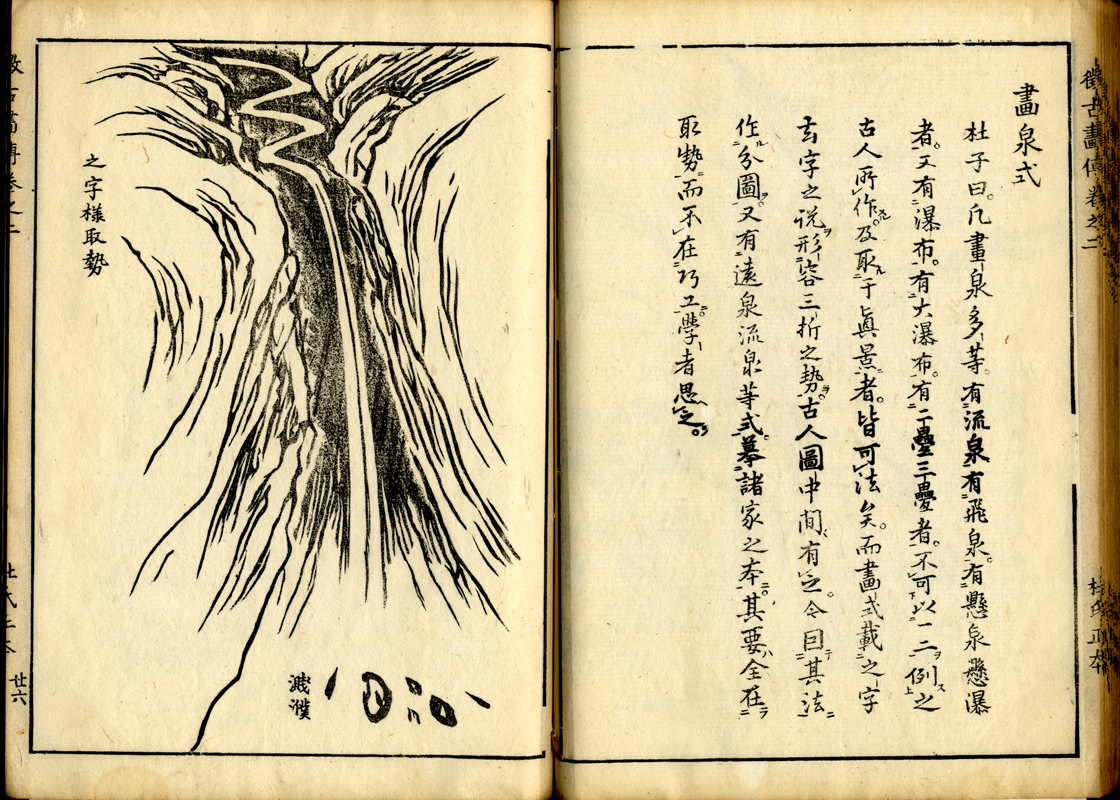 徵古畫傳卷之二
畫泉式
杜子曰。凡畫泉多等。有流泉有飛泉。有懸泉懸瀑
者。又有瀑布。有大瀑布。有二疊三疊者。不可以一二例之
古人所作。及取于眞景者。皆可法矣。而畫式載之字
玄字之説形容三折之勢。古人圖中間有之。今因其法
作分圖。又有遠泉流泉等式。摹諸家之本。其要全在
取勢而不在巧工。學者思之。
之字様取勢
濺濮
廿六